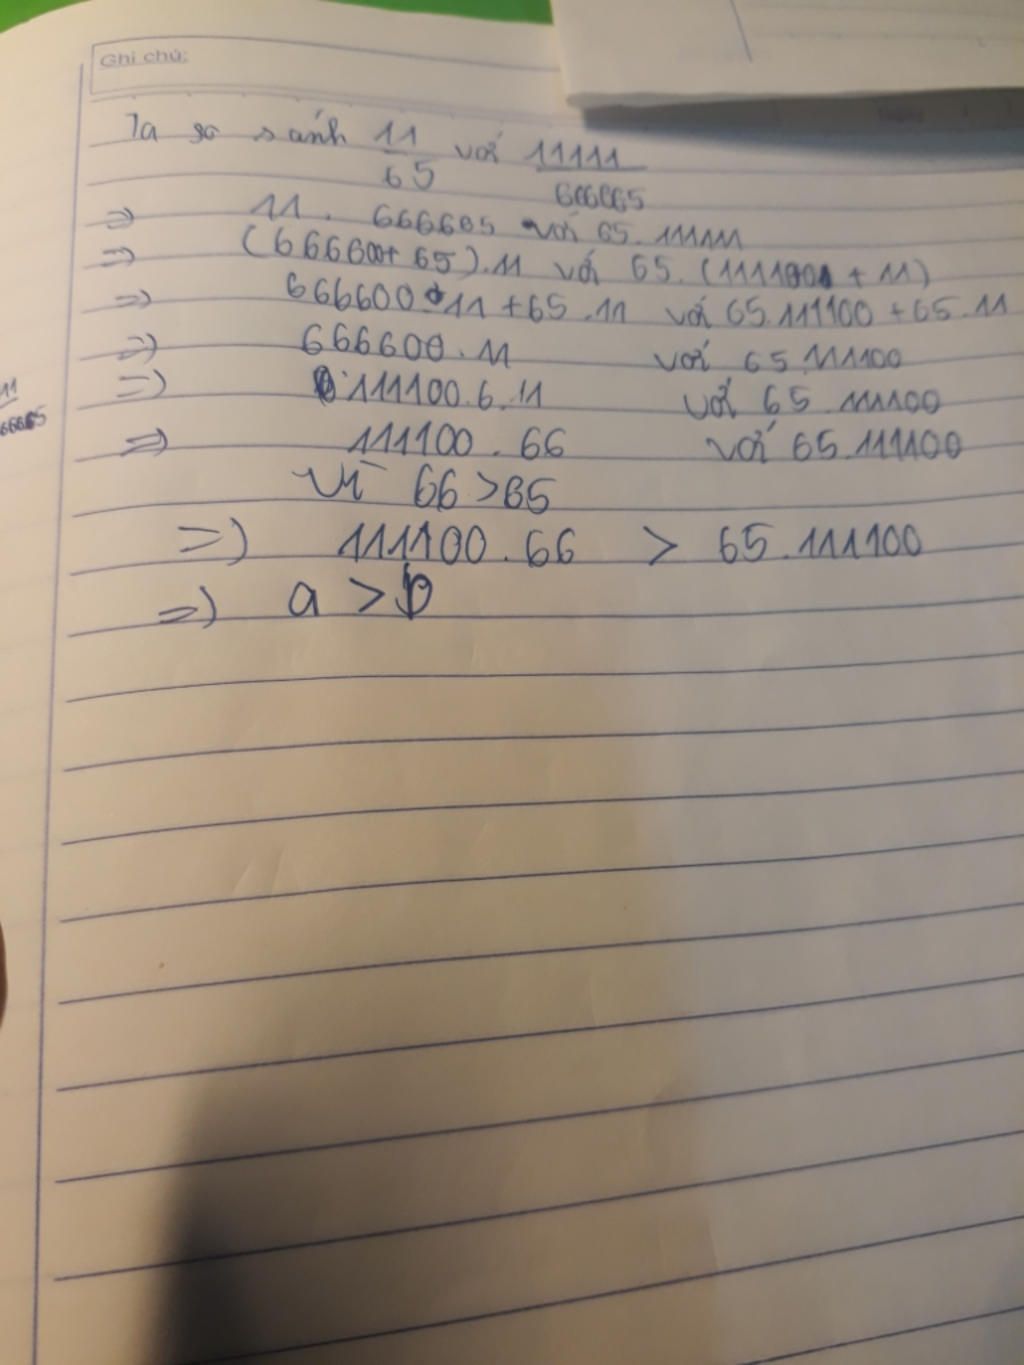 Ghi chú:
Ta so sánh 11/65 với 11111/666665
=> 11. 666665 với 65. 111111
=> (666600+ 65).11 với 65. (111100 + 11)
=> 666600.11 + 65.11 với 65.111100 + 65.11
=> 666600.11 với 65.111100
=> 111100.6.11 với 65.111100
=> 111100.66 với 65.111100
Vì 66 > 65
=> 111100.66 > 65.111100
=> a > b
11
66665